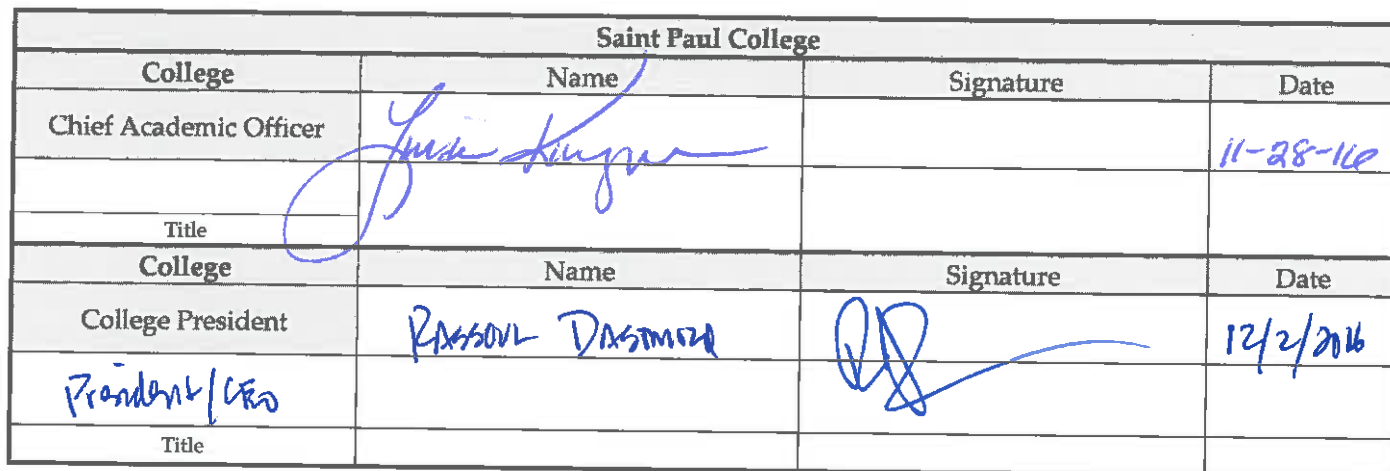 Saint Paul College
College Name Signature Date
Chief Academic Officer 11-28-16
Title
College Name Signature Date
College President RASSOUL DASTMOZD 12/2/2016
President/CEO
Title